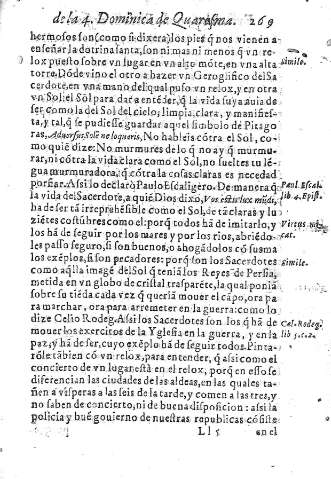 de la 4. Dominica de Quaresma. 269
hermosos son, como si dixera, los pies q̃ nos vienen a
enseñar la dotrina santa, son ni mas ni menos q̃ vn re-
lox puesto sobre vn lugar en vn alto mõte, en vna alta
torre. Dõde vino el otro a hazer vn Geroglifico del Sa
cerdote, en vna mano del qual puso vn relox, y en otra
vn Sol: el Sol para dar a entẽder, q̃ la vida suya auia de
ser como la del Sol del cielo; limpia, clara, y manifies-
ta, y tal, q̃ se pudiesse guardar aquel simbolo de Pitago
ras, Aduersus Solẽ ne loqueris, No hableis cõtra el Sol, co-
mo quiẽ dize: No murmures de lo q̃ no ay q̃ murmu-
rar, ni cõtra la vida clara como el Sol, no sueltes tu lẽ-
gua murmuradora; q̃ cõtra la cosas claras es necedad
porfiar. Assi lo declarò Paulo Escaligero. De manera q̃
la vida del Sacerdote, a quiẽ Dios dixo, Vos estis lux mũdi,
ha de ser tã irreprehẽsible como el Sol, de tã claras y lu
ziẽtes costũbres como el: porq̃ todos hã de imitarlo, y
los hã de seguir por los mares y por los rios, abriẽdo-
les passo seguro, si son buenos, o ahogãdolos cõ su ma
los exẽplos, si son pecadores: porq̃ son los Sacerdotes
como aq̃lla imagẽ del Sol q̃ teniã los Reyes de Persia,
metida en vn globo de cristal trasparẽte, la qual poniã
sobre su tiẽda cada vez q̃ queriã mouer el cãpo, ora pa
ra marchar, ora para arremeter en la guerra: como lo
dize Celio Rodeg. Assi los Sacerdotes son los q̃ hã de
mouer los exercitos de la Yglesia en la guerra, y en la
paz, y hã de ser, cuyo exẽplo hã de seguir todos. Pinta-
rõle tãbien cõ vn relox, para entender, q̃ assi como el
concierto de vn lugar està en el relox, porq̃ en esso se
diferencian las ciudades de las aldeas, en las quales ta-
ñen a visperas a las seis de la tarde, y comen a las tres, y
no saben de concierto, ni de buena disposicion: assi la
policia y buẽ gouierno de nuestras republicas cõsiste
Ll 5 en el
simile.
Paul. Escal.
lib. 4. Epist.
simile.
Cæl. Rodeg.